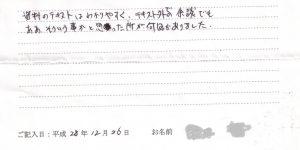 資料のテキストはわかりやすく、テキスト外の余談でも
ああそういう事かと思った所が何個もありました。
ご記入日：平成 28年 12月 26日 お名前